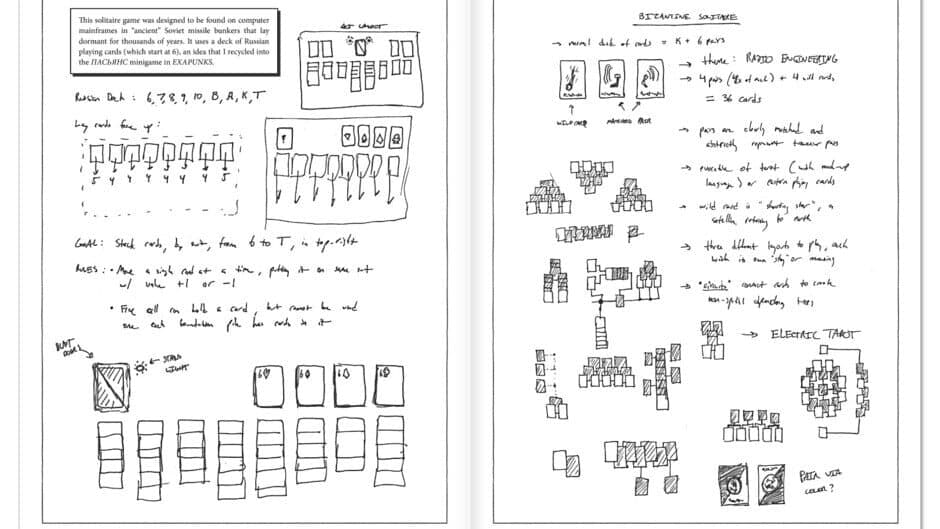 This solitaire game was designed to be found on computer
mainframes in "ancient" Soviet missile bunkers that lay
dormant for thousands of years. It uses a deck of Russian
playing cards (which start at 6), an idea that I recycled into
the ПАСЬЯНС minigame in EXAPUNKS.
ALT LAYOUT
Russian Deck : 6, 7, 8, 9, 10, B, A, K, T
Lay cards face up :
5 4 4 4 4 4 4 5
GOAL : Stack cards, by suit, from 6 to T, in top-right
RULES : • Move a single card at a time, putting it on same suit
w/ value +1 or -1
• Free cell can hold a card, but cannot be used
once each foundation pile has cards in it
BLAST DOOR?
STATUS LIGHT
6 6 6 6
BIZANTINE SOLITAIRE
→ normal deck of cards = K + 6 pairs
→ theme : RADIO ENGINEERING
→ 4 pairs (4x of each) + 4 wild cards
= 36 cards
WILD CARD
MATCHED PAIR
→ pairs are clearly matched and
abstractly represent pairs
→ evocative of tarot (with made-up
language) or playing cards
→ wild card is "shooting star", a
satellite returning to earth
→ three different layouts to play, each
with its own "story" or meaning
→ "circuits" connect cards to create
non-spatial dependency trees
→ ELECTRIC TAROT
PAIR VIA
COLOR?